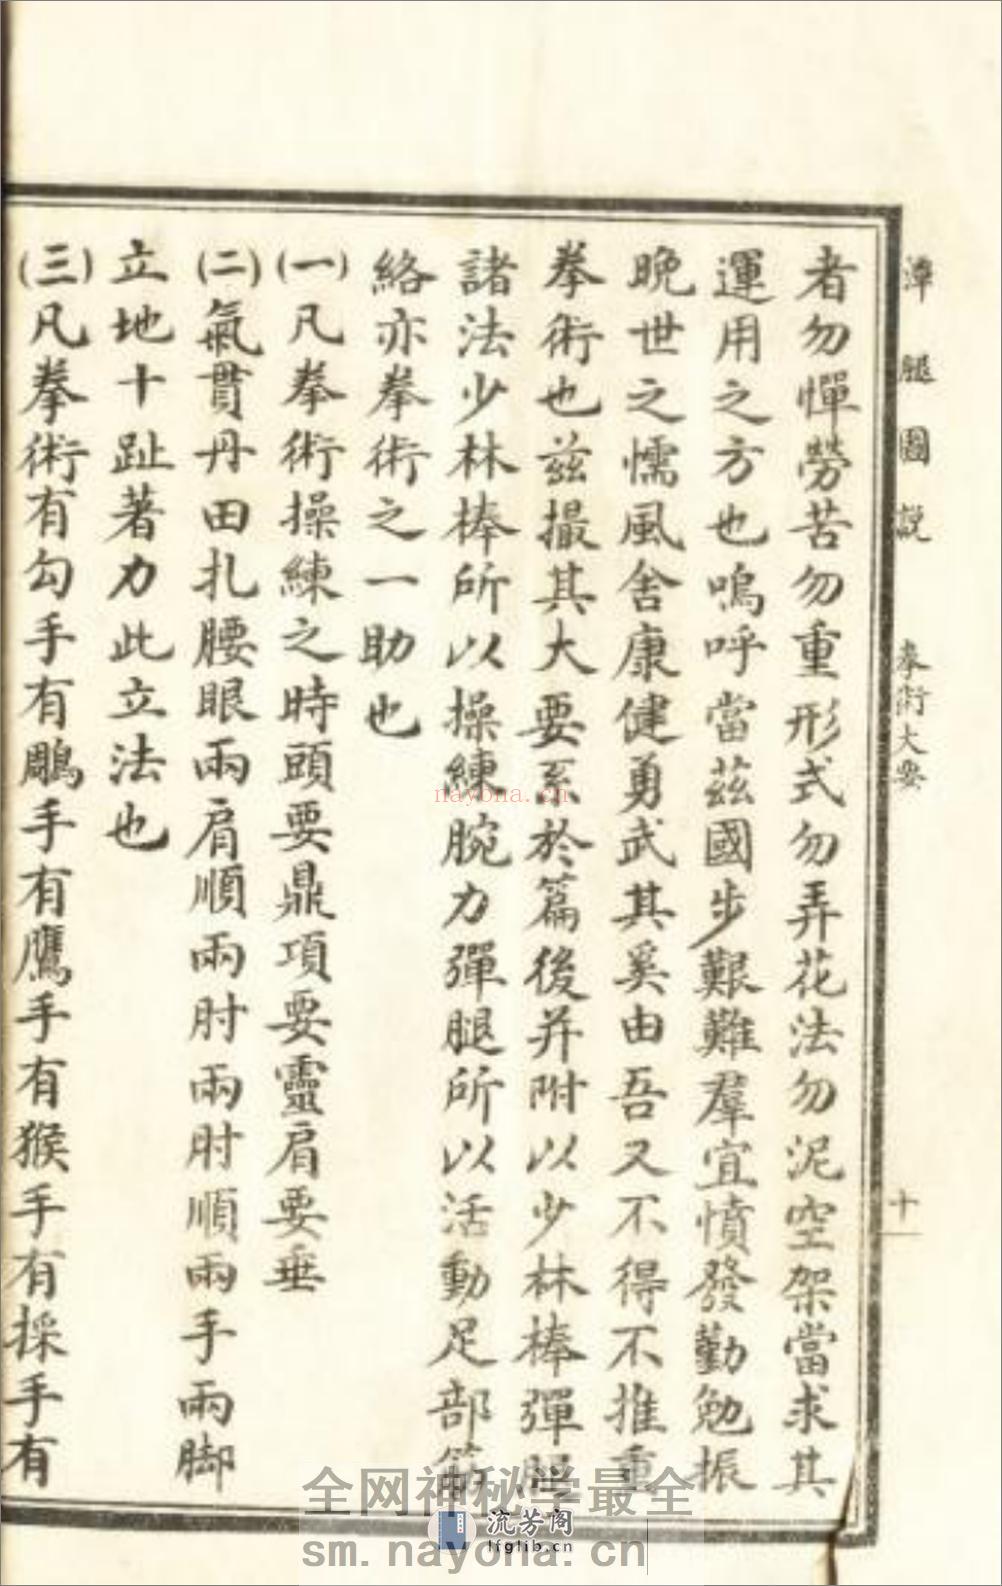 潭腿圖說 拳術大要 十
者勿憚勞苦勿重形式勿弄花法勿泥空架當求其
運用之方也嗚呼當茲國步艱難羣宜憤發勤勉振
晚世之懦風舍康健勇武其奚由吾又不得不推重
拳術也茲撮其大要系於篇後并附以少林棒彈腿
諸法少林棒所以操練腕力彈腿所以活動足部筋
絡亦拳術之一助也
(一)凡拳術操練之時頭要鼎項要靈肩要垂
(二)氣貫丹田扎腰眼兩肩順兩肘兩肘順兩手兩脚
立地十趾著力此立法也
(三)凡拳術有勾手有鵰手有鷹手有猴手有採手有
nayona.cn
全网神秘学最全
流芳阁
lfglib.cn
sm.nayona.cn